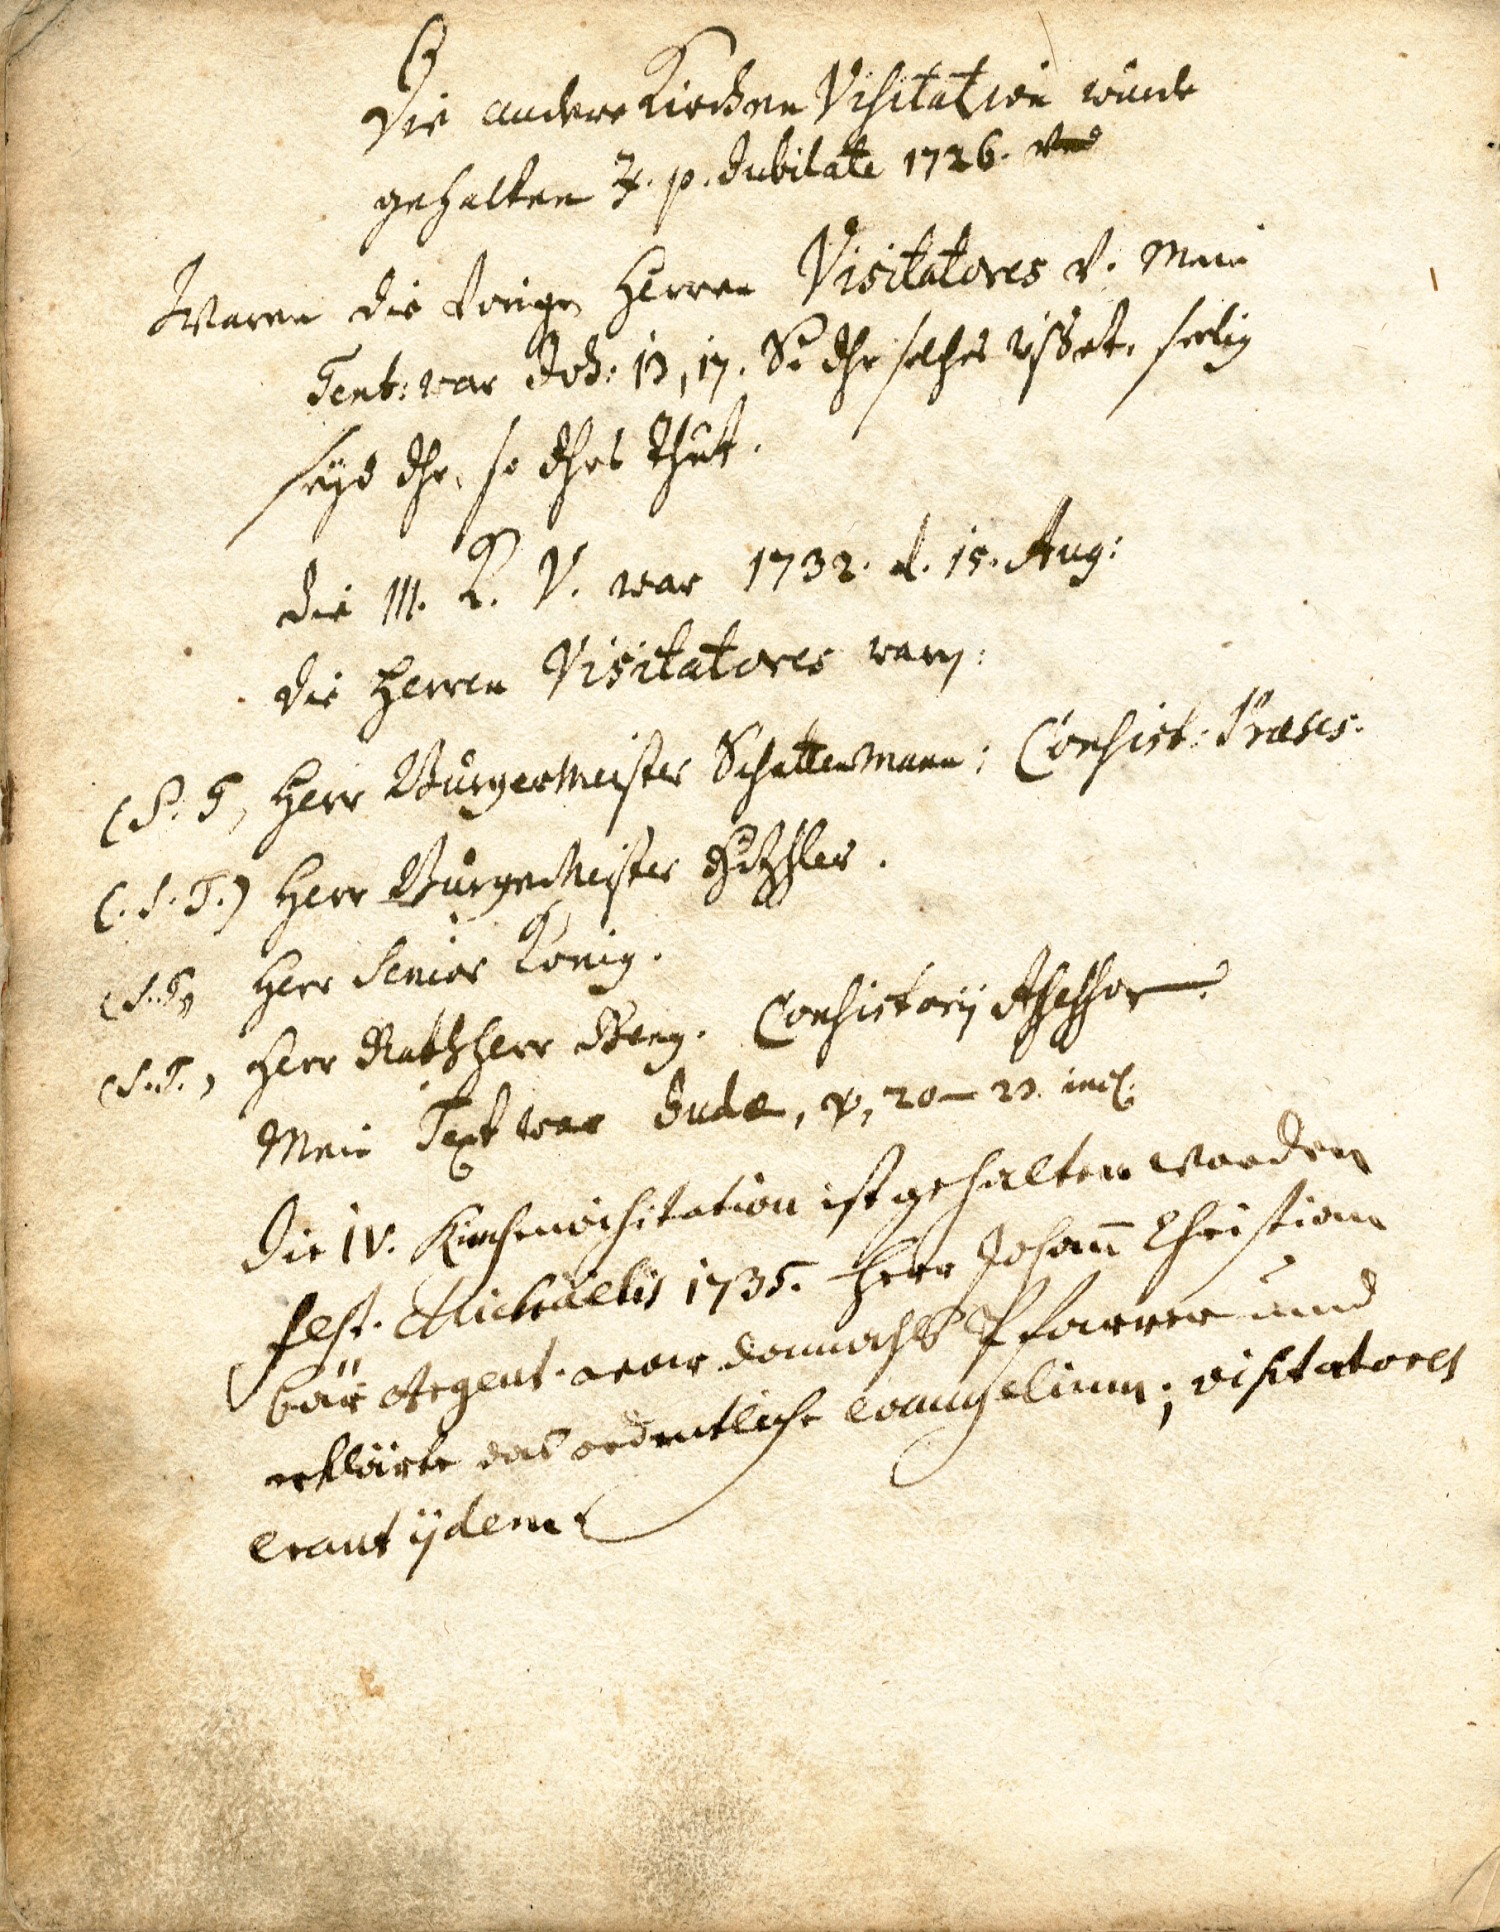 Die andere Kirchen Visitation wurde
gehalten p. Jubilate 1726.
Waren die vorige Herren Visitatores v. Mein
Text: war Joh: 13, 17. So Ihr solches wißet, seelig
seyd Ihr, so Ihrs thut.
Die III. K. V. war 1732. d. 15. Aug:
Die Herren Visitatores waren:
(S. T) Herr Burgermeister Schattenmann; Consist: Præses.
(. S. T.) Herr Burgermeister
(S. T) Herr Senior König.
(S. T.) Herr Rathsherr Consistorij Assessor.
Mein Text war Judæ, v, 20 – 23. incl.
Die IV. Kirchenvisitation ist gehalten worden
Fest. Michaelis 1735. Herr Johann̄ Christian
Bär Argent. war damahls Pfarrer und
erklärte das ordentliche Evangelium; visitatores
erant ijdem.